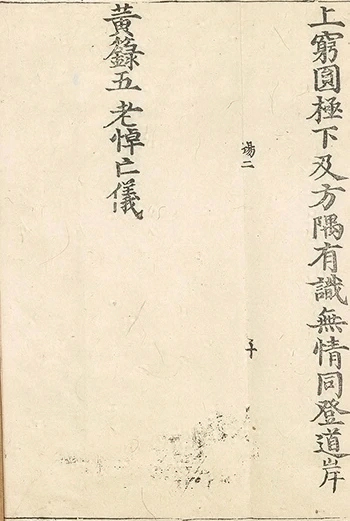 上窮圓極下及方隅有識無情同登道岸
塲二
黃籙五老悼亡儀